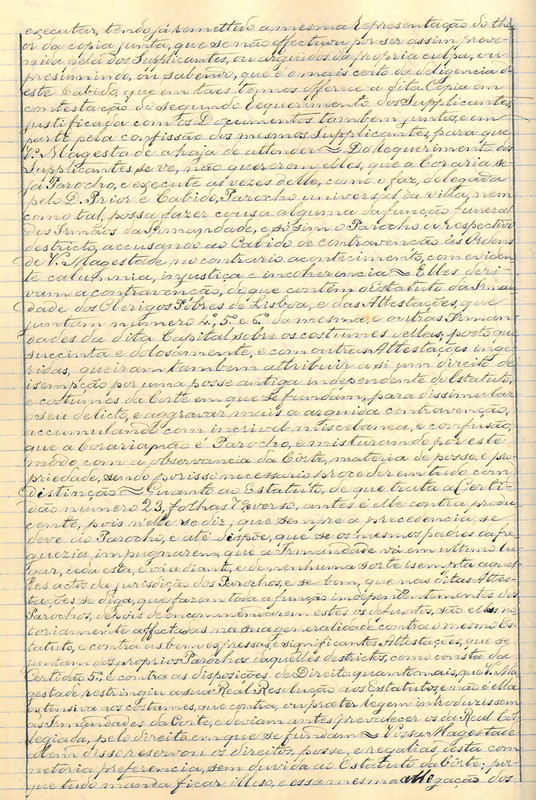 executar, tendo já remettido a mesma Representação do the-
or da copia junta, que se não effectuou por ser assim promo-
vida pelos Supplicantes, ou arguidos da propria culpa, ou
presumindo, ou sabendo, que é o mais certo da deligencia d'
este Cabido, que em taes termos offerece a dita Copia em
contestação do segundo requerimento dos Supplicantes,
justificada com os Documentos tambem juntos, e em
parte pela confissão dos mesmos Supplicantes, para que
V. Magestade a haja de attender = Do requerimento dos
Supplicantes se ve, não quererem elles, que a Coraria se-
ja Parocho, e execute as vezes delle, como o faz, delegada
pelo D. Prior e Cabido, Parocho universal da villa, nem
como tal, possa fazer cousa alguma da função funeral
dos Irmãos da Irmandade, e só sim o Parocho ou respectivo
destricto, accusando ao Cabido de contravenção ás Ordens
de V. Magestade, no contrario acontecimento, com eviden-
te calumnia, injustiça e incoherencia = Elles deri-
vam a contravenção, do que contém o Estatuto da Irman-
dade dos Clerigos Pobres de Lisboa, e das Attestações, que
juntam numero 4º, 5º e 6º da mesma, e outras Irman-
dades da dita Capital sobre os costumes dellas; posto que
succinta e dolosamente, e com outras Attestações inge-
ridas, queiram tambem attribuir a si um direito de
isempção por uma posse antiga independente do Estatuto,
e costumes da Corte em que se fundam, para dissimular
o seu delicto, e aggravar mais a arguida contravenção,
accumulando com incrivel miscelanea, e confusão,
que a Coraria não é Parocho, e misturando por este
modo com a observancia da Côrte, materia de posse, e pro-
priedade, sendo por isso necessario proceder em tudo com
distinção = Quanto ao Estatuto, de que trata a Certi-
dão numero 23, folhas 1 e verso, antes é elle contra produ-
cente, pois nelle se diz, que sempre a precedencia, se
deve ao Parocho, e até dispõe, que se os mesmos padres da fre-
guezia, impugnarem, que a Irmandade vá em ultimo lu-
gar, ceda esta, e vá adiante, e de nenhuma sorte isempta aquel-
les actos da jurisdição dos Parochos, e se bem, que nas ditas Attes-
tações se diga, que fazem toda a função independentemente dos
Parochos, depois de encommendarem estes os defuntos, são ellas no-
toriamente affectadas na sua generalidade contra o mesmo Es-
tatuto, e contra as bem expressas, e significantes Attestações, que se
juntam dos proprios Parochos daquelles destrictos, como consta da
Certidão 5ª, e contra as disposições de Direito quanto mais, que V. Ma-
gestade restringiu a sua Real Resolução aos Estatutos, e não é ella
extensiva aos costumes, que contra, ou praeter legem introduzissem
as Irmandades da Corte, e deviam antes prevalecer os da Real Col-
legiada, pelo direito em que se fundam = Vossa Magestade
alem disso reservou os direitos, posse, e regalias desta com
notoria preferencia, sem duvida ao Estatuto da Côrte; por-
que tudo manda ficar illeso, e essa mesma Allegação dos